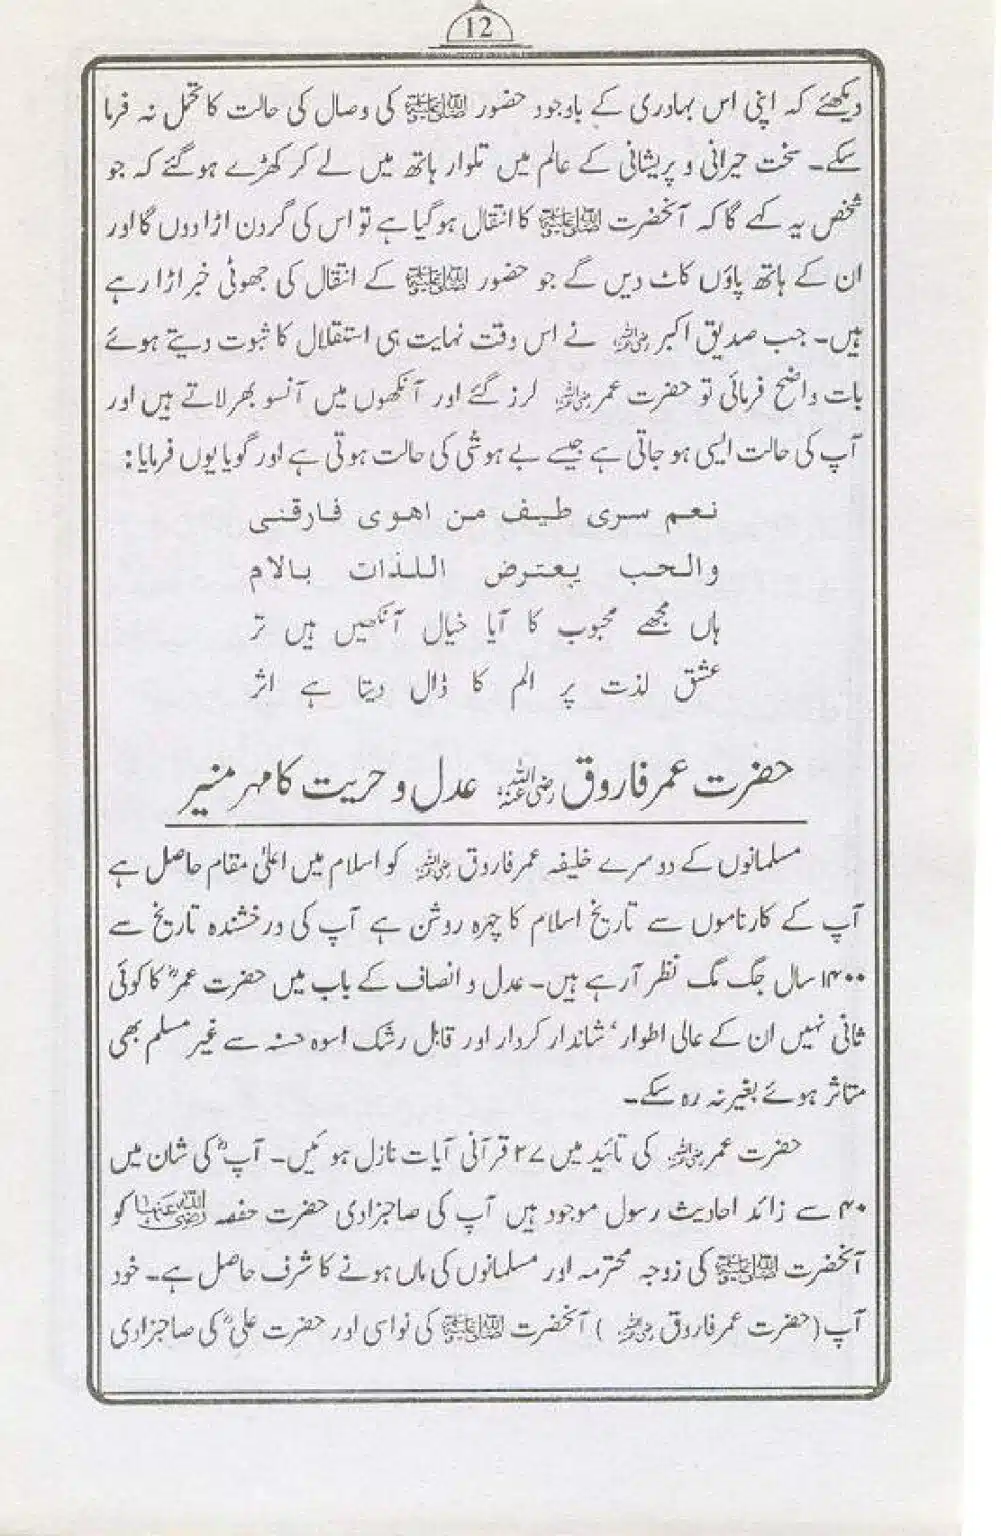 12
دیکھئے کہ اپنی اس بہادری کے باوجود حضور ﷺ کی وصال کی حالت کا تحمل نہ فرما
سکے۔ سخت حیرانی و پریشانی کے عالم میں تلوار ہاتھ میں لے کر کھڑے ہو گئے کہ جو
شخص یہ کہے گا کہ آنحضرت ﷺ کا انتقال ہو گیا ہے تو اس کی گردن اڑا دوں گا اور
ان کے ہاتھ پاؤں کاٹ دیں گے جو حضور ﷺ کے انتقال کی جھوٹی خبر اڑا رہے
ہیں۔ جب صدیق اکبر رضی اللہ عنہ نے اس وقت نہایت ہی استقلال کا ثبوت دیتے ہوئے
بات واضح فرمائی تو حضرت عمر رضی اللہ عنہ لرز گئے اور آنکھوں میں آنسو بھر لاتے ہیں اور
آپ کی حالت ایسی ہو جاتی ہے جیسے بے ہوشی کی حالت ہوتی ہے اور گویا یوں فرمایا:
نعم سری طیف من اهوی فارقنی
والحب یعترض اللذات بالام
ہاں مجھے محبوب کا آیا خیال آنکھیں ہیں تر
عشق لذت پر الم کا ڈال دیتا ہے اثر
حضرت عمر فاروق رضی اللہ عنہ عدل و حریت کا مہر منیر
مسلمانوں کے دوسرے خلیفہ عمر فاروق رضی اللہ عنہ کو اسلام میں اعلیٰ مقام حاصل ہے
آپ کے کارناموں سے تاریخ اسلام کا چہرہ روشن ہے آپ کی درخشندہ تاریخ سے
۱۴۰۰ سال جگ مگ نظر آ رہے ہیں۔ عدل و انصاف کے باب میں حضرت عمرؓ کا کوئی
ثانی نہیں ان کے عالی اطوار‘ شاندار کردار اور قابل رشک اسوہ حسنہ سے غیر مسلم بھی
متاثر ہوئے بغیر نہ رہ سکے۔
حضرت عمر رضی اللہ عنہ کی تائید میں ۲۷ قرآنی آیات نازل ہوئیں۔ آپؓ کی شان میں
۴۰ سے زائد احادیث رسول موجود ہیں آپ کی صاحبزادی حضرت حفصہ رضی اللہ عنہا کو
آنحضرت ﷺ کی زوجہ محترمہ اور مسلمانوں کی ماں ہونے کا شرف حاصل ہے۔ خود
آپ (حضرت عمر فاروق رضی اللہ عنہ) آنحضرت ﷺ کی نواسی اور حضرت علیؓ کی صاحبزادی